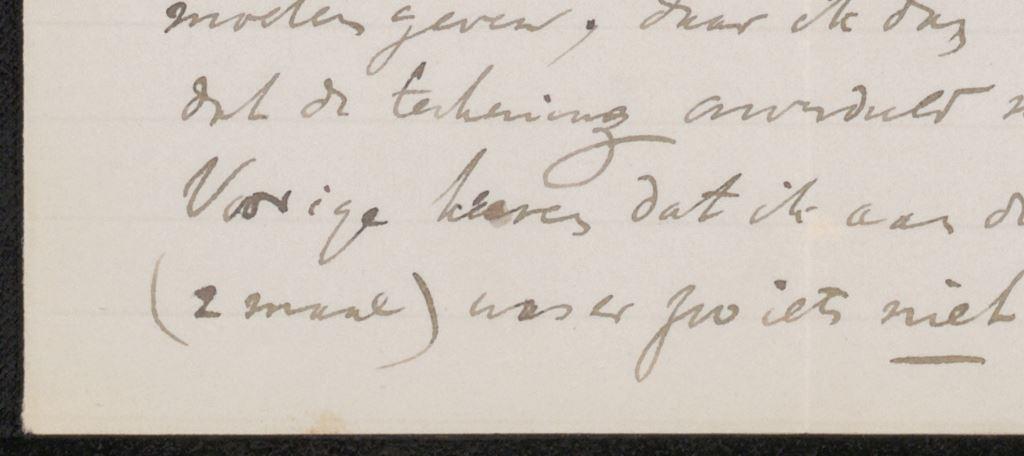 moeten geven, daar ik dan
dat de teekening
Vorige keeren dat ik aan d
(2 maal) was er zoo iets niet